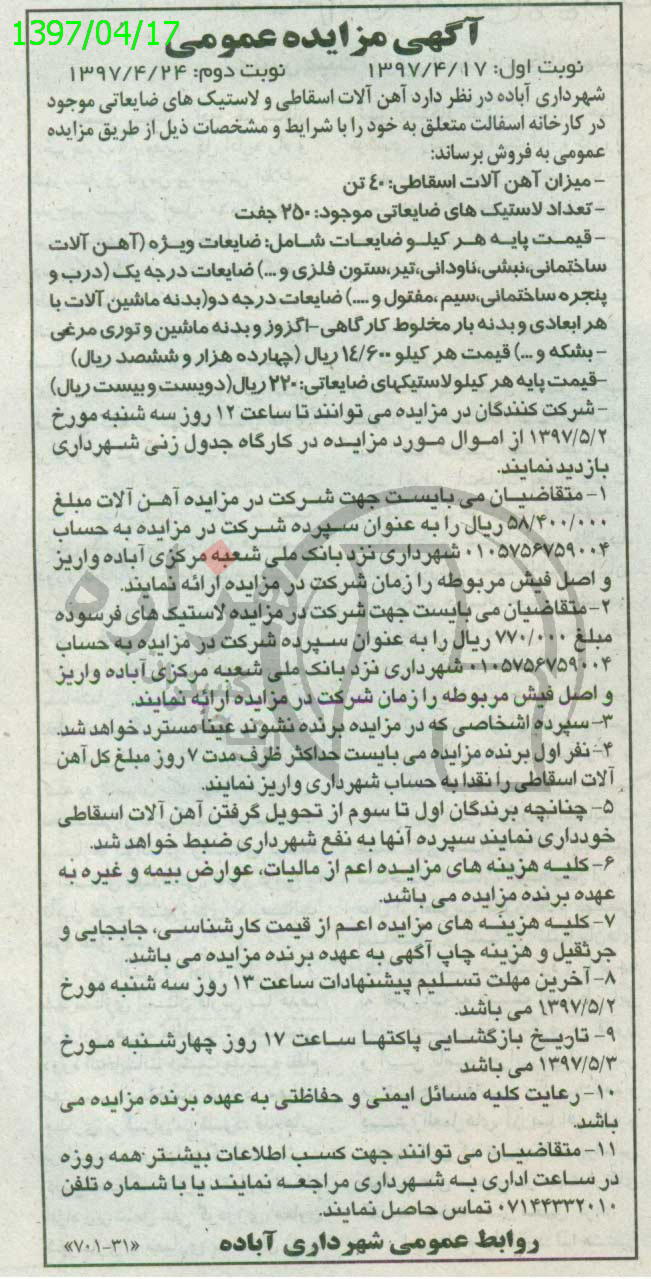 1397/04/17
آگهی مزایده عمومی
نوبت اول: ۱۳۹۷/۴/۱۷ نوبت دوم: ۱۳۹۷/۴/۲۴
شهرداری آباده در نظر دارد آهن آلات اسقاطی و لاستیک های ضایعاتی موجود
در کارخانه اسفالت متعلق به خود را با شرایط و مشخصات ذیل از طریق مزایده
عمومی به فروش برساند:
- میزان آهن آلات اسقاطی: ۴۰ تن
- تعداد لاستیک های ضایعاتی موجود: ۲۵۰ جفت
- قیمت پایه هر کیلو ضایعات شامل: ضایعات ویژه (آهن آلات
ساختمانی،نبشی،ناودانی،تیر،ستون فلزی و...) ضایعات درجه یک (درب و
پنجره ساختمانی،سیم ،مفتول و....) ضایعات درجه دو(بدنه ماشین آلات با
هر ابعادی و بدنه بار مخلوط کارگاهی-اگزوز و بدنه ماشین و توری مرغی
- بشکه و ...) قیمت هر کیلو ۱۴/۶۰۰ ریال (چهارده هزار و ششصد ریال)
-قیمت پایه هر کیلو لاستیکهای ضایعاتی: ۲۲۰ ریال(دویست و بیست ریال)
- شرکت کنندگان در مزایده می توانند تا ساعت ۱۲ روز سه شنبه مورخ
۱۳۹۷/۵/۲ از اموال مورد مزایده در کارگاه جدول زنی شهرداری
بازدید نمایند.
۱- متقاضیان می بایست جهت شرکت در مزایده آهن آلات مبلغ
۵۸/۴۰۰/۰۰۰ ریال را به عنوان سپرده شرکت در مزایده به حساب
۰۱۰۵۷۵۶۷۵۹۰۰۴ شهرداری نزد بانک ملی شعبه مرکزی آباده واریز
و اصل فیش مربوطه را زمان شرکت در مزایده ارائه نمایند.
۲- متقاضیان می بایست جهت شرکت در مزایده لاستیک های فرسوده
مبلغ ۷۷۰/۰۰۰ ریال را به عنوان سپرده شرکت در مزایده به حساب
۰۱۰۵۷۵۶۷۵۹۰۰۴ شهرداری نزد بانک ملی شعبه مرکزی آباده واریز
و اصل فیش مربوطه را زمان شرکت در مزایده ارائه نمایند.
۳- سپرده اشخاصی که در مزایده برنده نشوند عیناً مسترد خواهد شد.
۴- نفر اول برنده مزایده می بایست حداکثر ظرف مدت ۷ روز مبلغ کل آهن
آلات اسقاطی را نقدا به حساب شهرداری واریز نمایند.
۵- چنانچه برندگان اول تا سوم از تحویل گرفتن آهن آلات اسقاطی
خودداری نمایند سپرده آنها به نفع شهرداری ضبط خواهد شد.
۶- کلیه هزینه های مزایده اعم از مالیات، عوارض بیمه و غیره به
عهده برنده مزایده می باشد.
۷- کلیه هزینه های مزایده اعم از قیمت کارشناسی، جابجایی و
جرثقیل و هزینه چاپ آگهی به عهده برنده مزایده می باشد.
۸- آخرین مهلت تسلیم پیشنهادات ساعت ۱۳ روز سه شنبه مورخ
۱۳۹۷/۵/۲ می باشد.
۹- تاریخ بازگشایی پاکتها ساعت ۱۷ روز چهارشنبه مورخ
۱۳۹۷/۵/۳ می باشد
۱۰- رعایت کلیه مسائل ایمنی و حفاظتی به عهده برنده مزایده می
باشد.
۱۱- متقاضیان می توانند جهت کسب اطلاعات بیشتر همه روزه
در ساعت اداری به شهرداری مراجعه نمایند یا با شماره تلفن
۰۷۱۴۴۳۳۲۰۱۰ تماس حاصل نمایند.
روابط عمومی شهرداری آباده «۷۰۱-۳۱»
هزاره